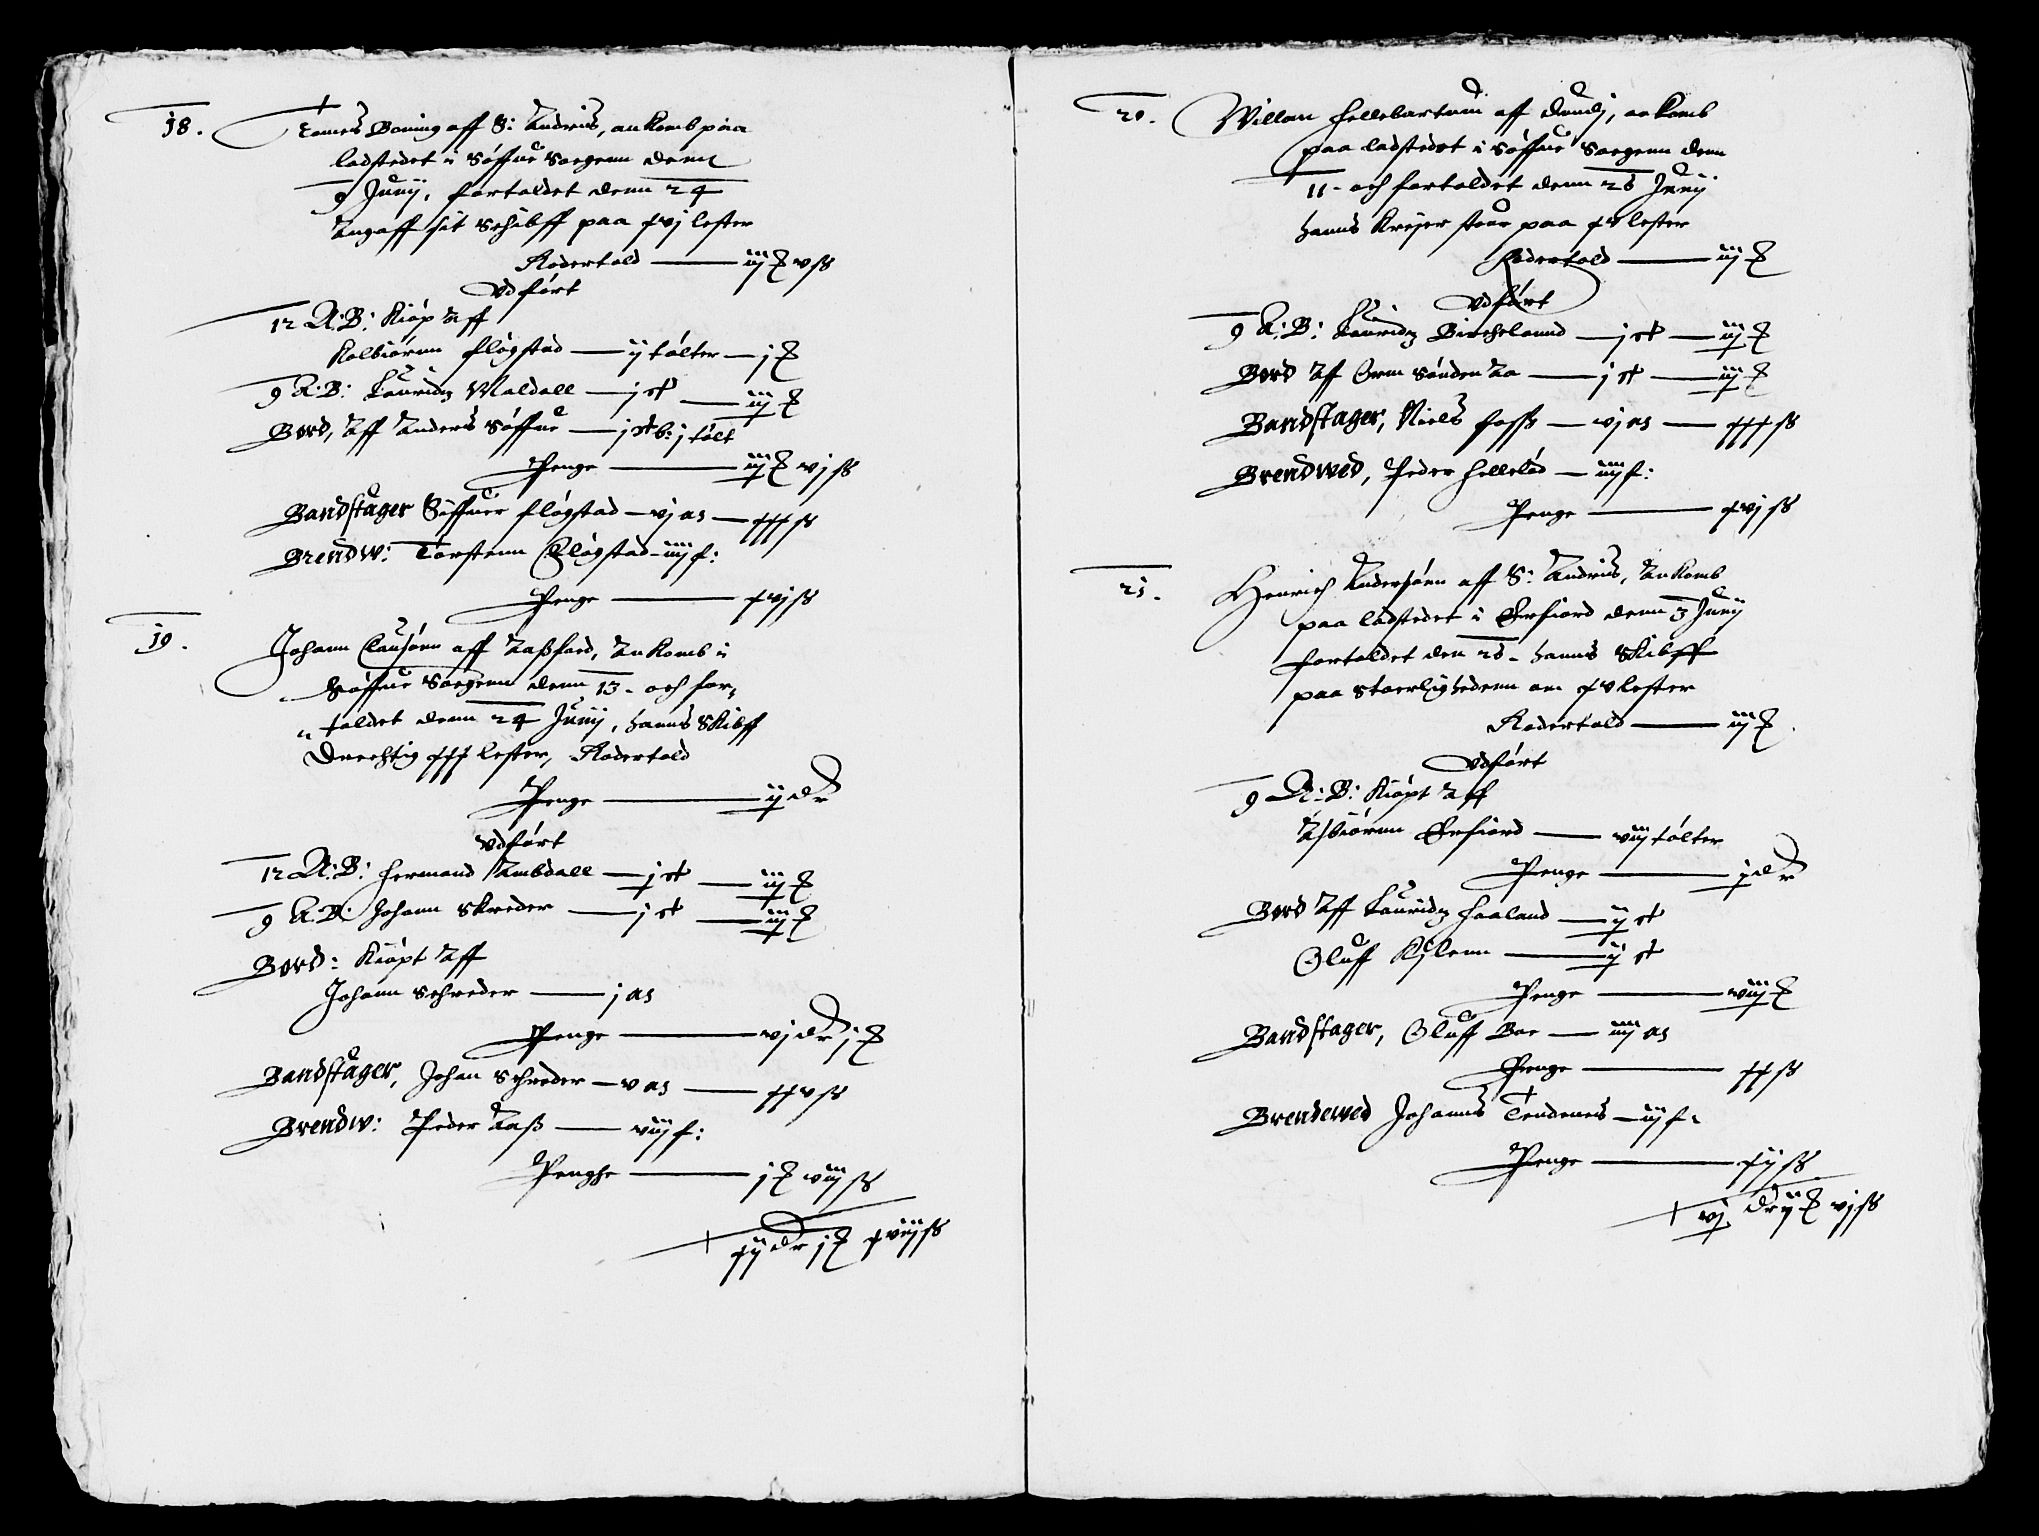 18.
Tomes Boning aff S: Andrius, ankomb paa
ladstedet i Søffue Soegenn denn
9 Junij, fortoldet denn 24
Angaff sit Schibff paa xvj lester
Rodertold — iij ℥ v ß
Vdført
12 A: B: Kiøp Aff
Kolbiørnn Fløgstad — ij tølter — j ℥
9 A: B: Lauridz Maldall — j st — iij ℥
Bord, Aff Anders Søffue — j st b: j tølt
Penge — iij ℥ vj ß
Bandstager Søffuer Fløgstad — vj as — xxx ß
Brendw: Torstenn Fløgstad — iiij f:
Penge — xvj ß
19.
Johann Clausønn aff Aaßfard, Ankomb i
Søffue Soegenn denn 13 - och for,
,, toldet denn 24 Junij, hanns Skibff
Drechtig xxx lester, Rodertold
Penge — ij dr
Vdført
12 A: B: Hermand Ambdall — j st — iij ℥
9 A: B: Johann Skreder — j st — iij ℥
Bord: Kiøpt Aff
Johann Schreder — j as
Penge — vj dr j ℥
Bandstager, Johan Schreder — v as — xxv ß
Brendw: Peder Aaß — viij f:
Penghe — j ℥ viij ß
xij dr j ℥ xviij ß
20.
Willom Hellebartum aff Dundj, ankomb
paa ladstedet i Søffue Soegenn denn
11 - och fortoldet denn 26 Junij
hanns Kreyer stour paa xv lester
Rodertold — iij ℥
Vdført
9 A: B: Lauridz Birchelannd — j st — iij ℥
Bord Aff Orm Sønden Aa — j st — iij ℥
Bandstager, Niels Foss — vj as — xxx ß
Brendwed, Peder Hellelød — iiij f:
Penge — xvj ß
21.
Henrich Andersønn aff S: Andrius, Ankomb
paa ladstedet i Erfiord denn 3 Junij
fortoldet den 26 - hanns Skibff
paa Stoerlighedenn om xv lester
Rodertold — iij ℥
Vdført
9 A: B: Kiøpt Aff
Asbiørnn Erfiord — viij tølter
Penge — j dr
Bord Aff Lauridz Haaland — ij st
Oluff Kylenn — ij st
Penge — viij ℥
Bandstager, Oluff Boe — iiij as
Penge — xx ß
Brendewed Johanns Tendenes — iij f:
Penge — xij ß
vj dr ij ℥ vj ß